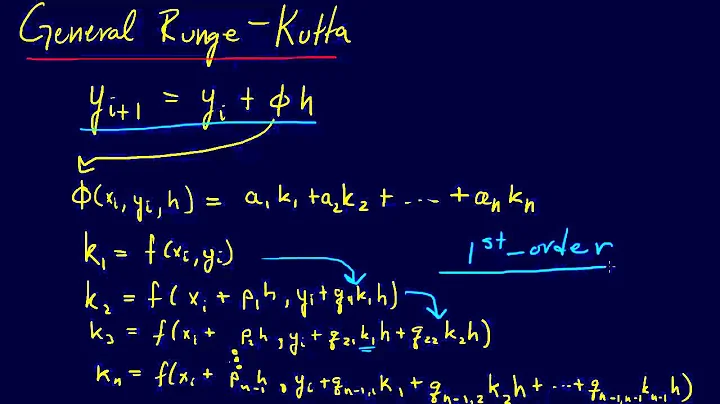 General Runge-Kutta
y_{i+1} = y_i + φ h
φ(x_i, y_i, h) = a_1 k_1 + a_2 k_2 + ... + a_n k_n
k_1 = f(x_i, y_i)
1st-order
k_2 = f(x_i + p_1 h, y_i + q_{11} k_1 h)
k_3 = f(x_i + p_2 h, y_i + q_{21} k_1 h + q_{22} k_2 h)
k_n = f(x_i + p_{n-1} h, y_i + q_{n-1,1} k_1 + q_{n-1,2} k_2 h + ... + q_{n-1,n-1} k_{n-1} h)